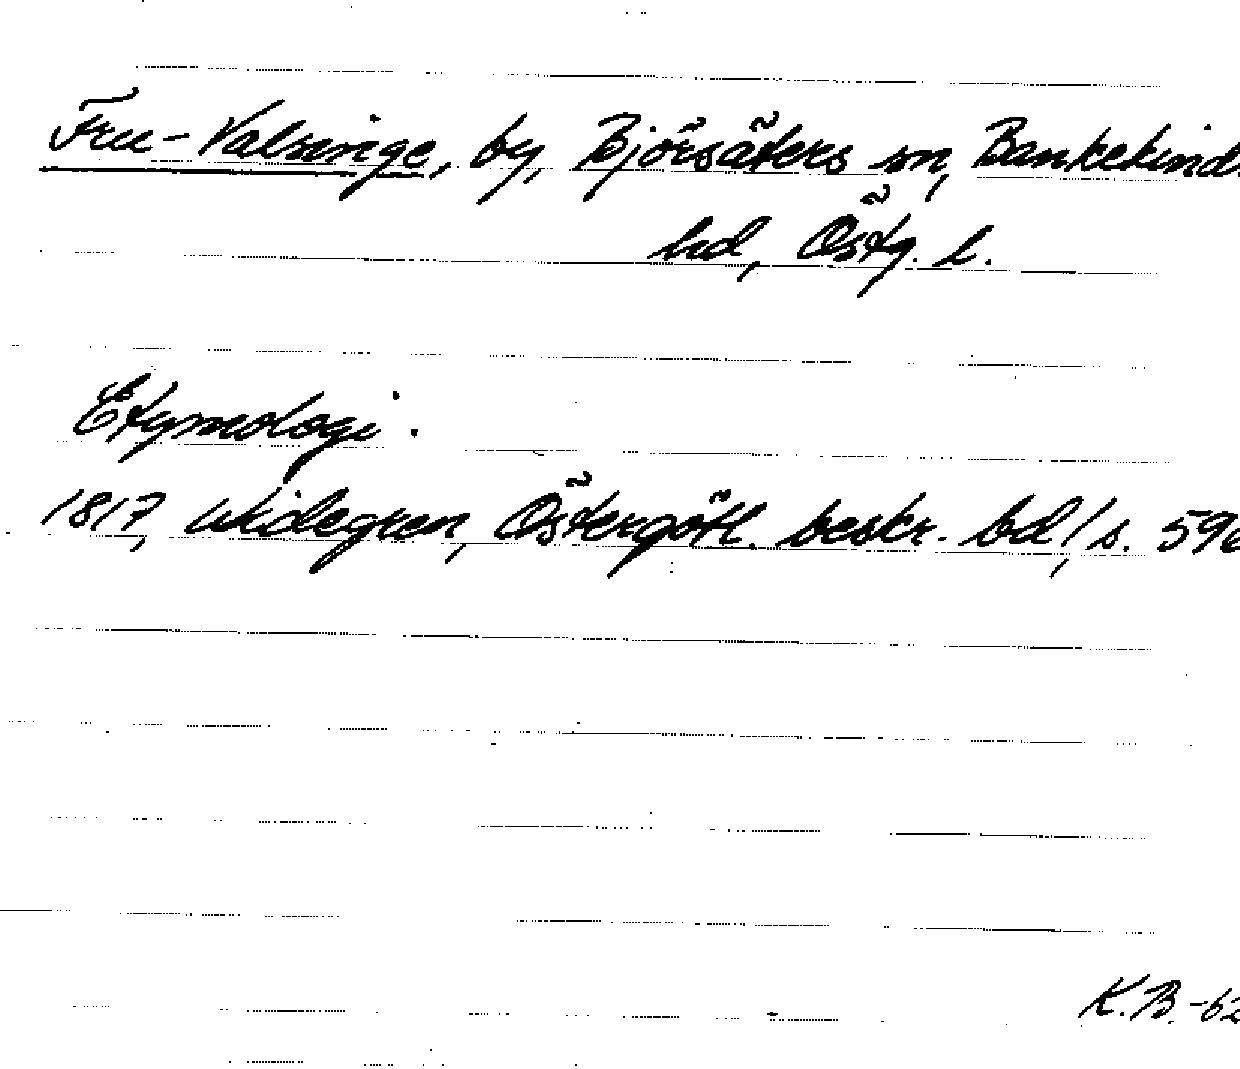 Fru-Valsinge, by, Björsäters sn, Bankekinds
hd, Östg. l.
Etymologi.
1817, Widegren, Östergötl. beskr. bd 1, s. 596
K.B. -62